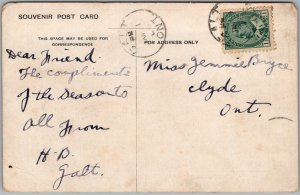 SOUVENIR POST CARD
THIS SPACE MAY BE USED FOR
CORRESPONDENCE
FOR ADDRESS ONLY
Dear Friend.
The compliments
of the Seasons to
All From
H.D.
Galt.
Miss Jemmie Bryce
Clyde
Ont.
GALT
ONT